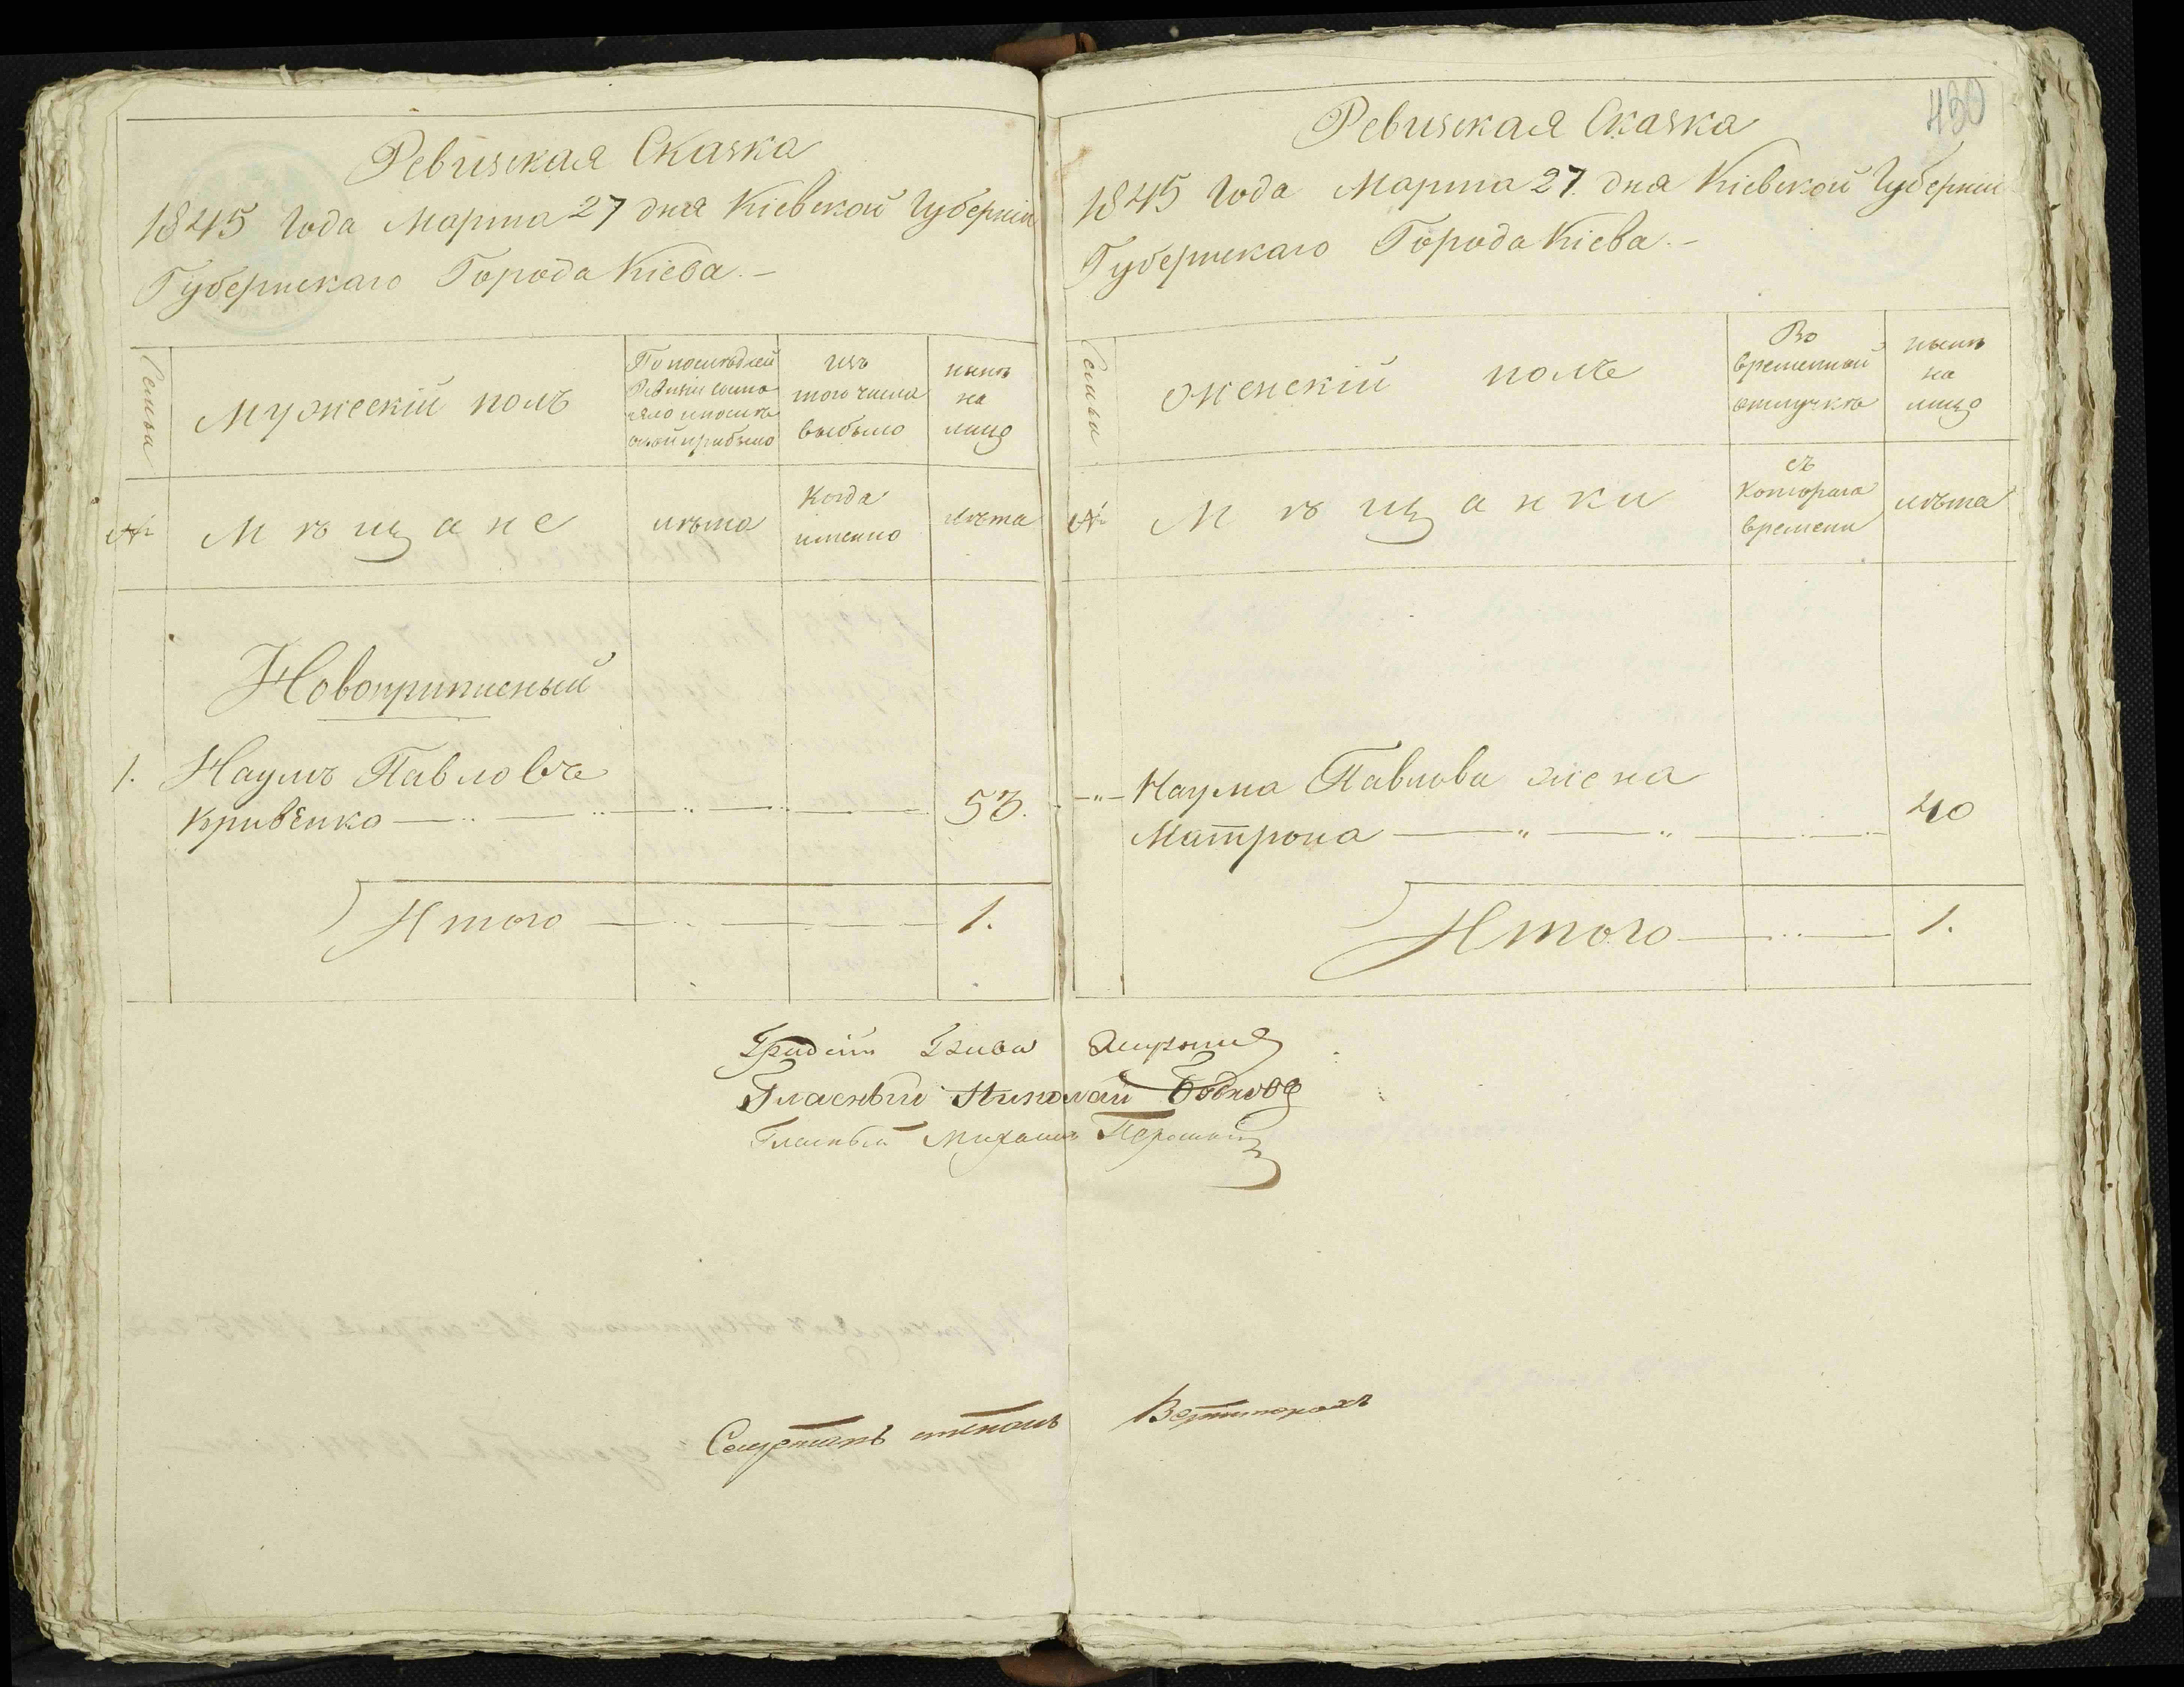 Ревизская Сказка
1845 Года Марта 27 дня Кіевской Губерніи
Губернскаго Города Кіева.-
Семьи
Мужескій полъ
По последней
Ревизіи состо
яло и после
оной прибыло
изъ
того числа
выбыло
ныне
на
лицо
№
Мѣщане
лѣта
Когда
именно
лѣта
Новоприписный
1. Наумъ Павловъ
Кривенко 53.
Итого 1.
430
Ревизская Сказка
1845 Года Марта 27. дня Кіевской Губерніи
Губернскаго Города Кіева.-
Семьи
женскій полъ
Во
временной
отлучкѣ
ныне
на
лицо
№
Мѣщанки
съ
котораго
времени
лѣта
-"- Наума Павлова жена
Матрона 40
Итого 1.
Гласный Николай
Гласный Михаилъ